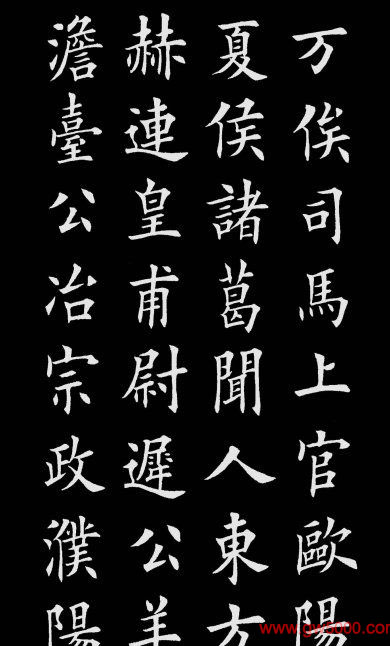 万俟司馬上官歐陽
夏侯諸葛聞人東方
赫連皇甫尉遲公羊
澹臺公冶宗政濮陽
www.gw5000.com